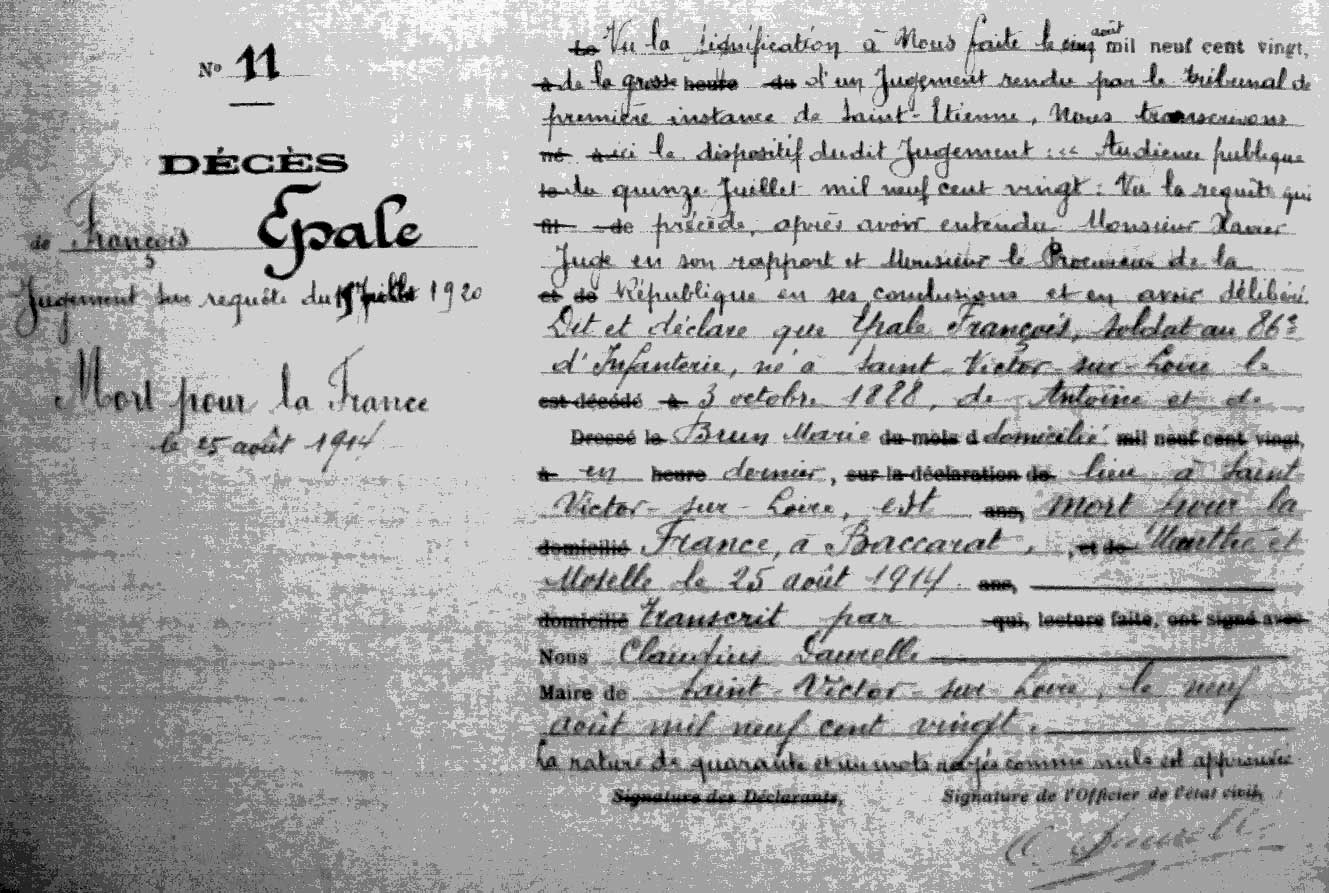 N° 11
DÉCÈS
de François Epale
Jugement sur requête du 15 Juillet 1920
Mort pour la France
le 25 août 1914
Le Vu la signification à Nous faite le cinq août mil neuf cent vingt,
à de la grosse heure du d'un Jugement rendu par le tribunal de
première instance de Saint-Etienne, Nous transcrivons
né à ici le dispositif dudit Jugement : << Audience publique
le du quinze Juillet mil neuf cent vingt : Vu la requête qui
fil de précède, après avoir entendu Monsieur Xavier
Juge en son rapport et Monsieur le Procureur de la
et de République en ses conclusions et en avoir délibéré
Dit et déclare que Epale François, soldat au 86e
d'Infanterie, né à Saint-Victor-sur-Loire le
est décédé à 3 octobre 1888, de Antoine et de
Dressé le Brun Marie du mois d domicilié mil neuf cent vingt,
à en heure dernier, sur la déclaration de lieu à Saint
Victor-sur-Loire, est ans, mort pour la
domicilié France, à Baccarat, , et de Meurthe et
Moselle le 25 août 1914. ans,
domicilié Transcrit par qui, lecture faite, ont signé avec
Nous Claudius Daurelle
Maire de Saint-Victor-sur Loire, le neuf
août mil neuf cent vingt.
La rature de quarante et un mots rayés comme nuls est approuvée
Signature des Déclarants, Signature de l'Officier de l'état civil,